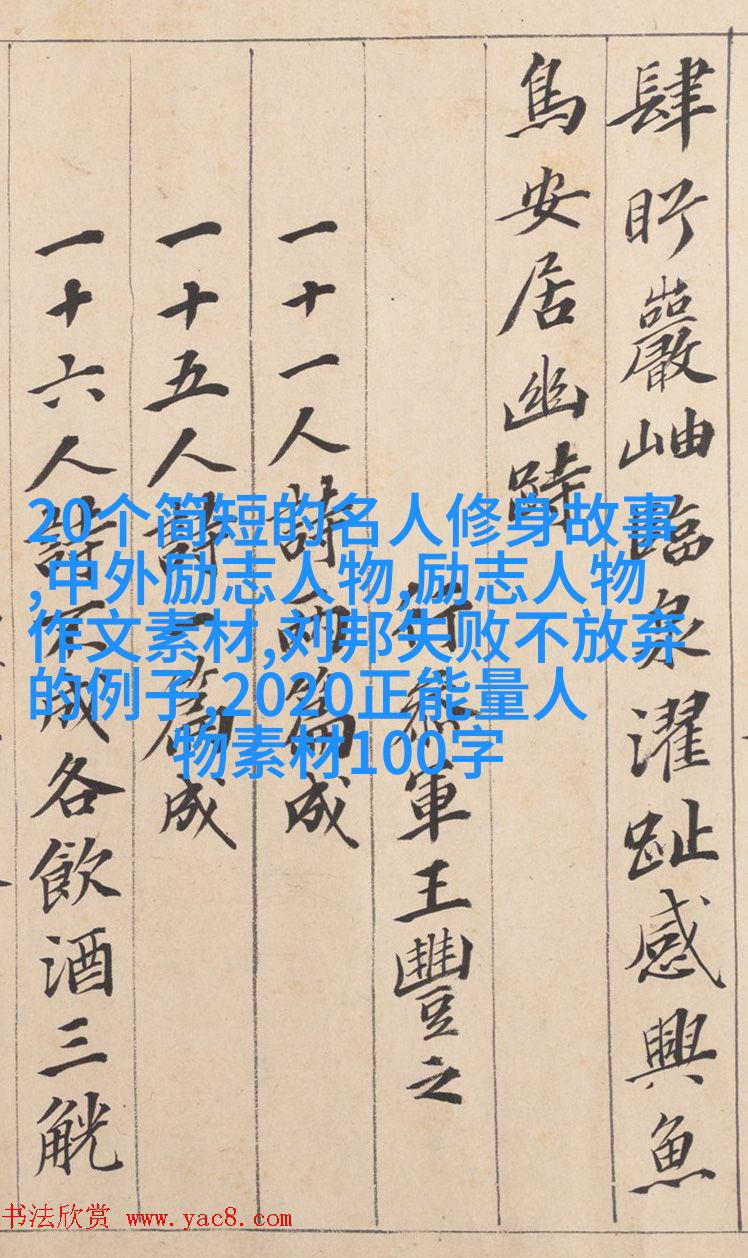 肆盻巖岫臨泉濯趾感興魚
鳥安居幽跱
行叅軍王豐之
一十一人詩兩篇成
一十五人詩一篇成
一十六人詩不成各飲酒三觥
20个简短的名人修身故事
,中外励志人物,励志人物
作文素材,刘邦失败不放弃
的例子,2020正能量人
物素材100字
书法欣赏 www.yac8.com